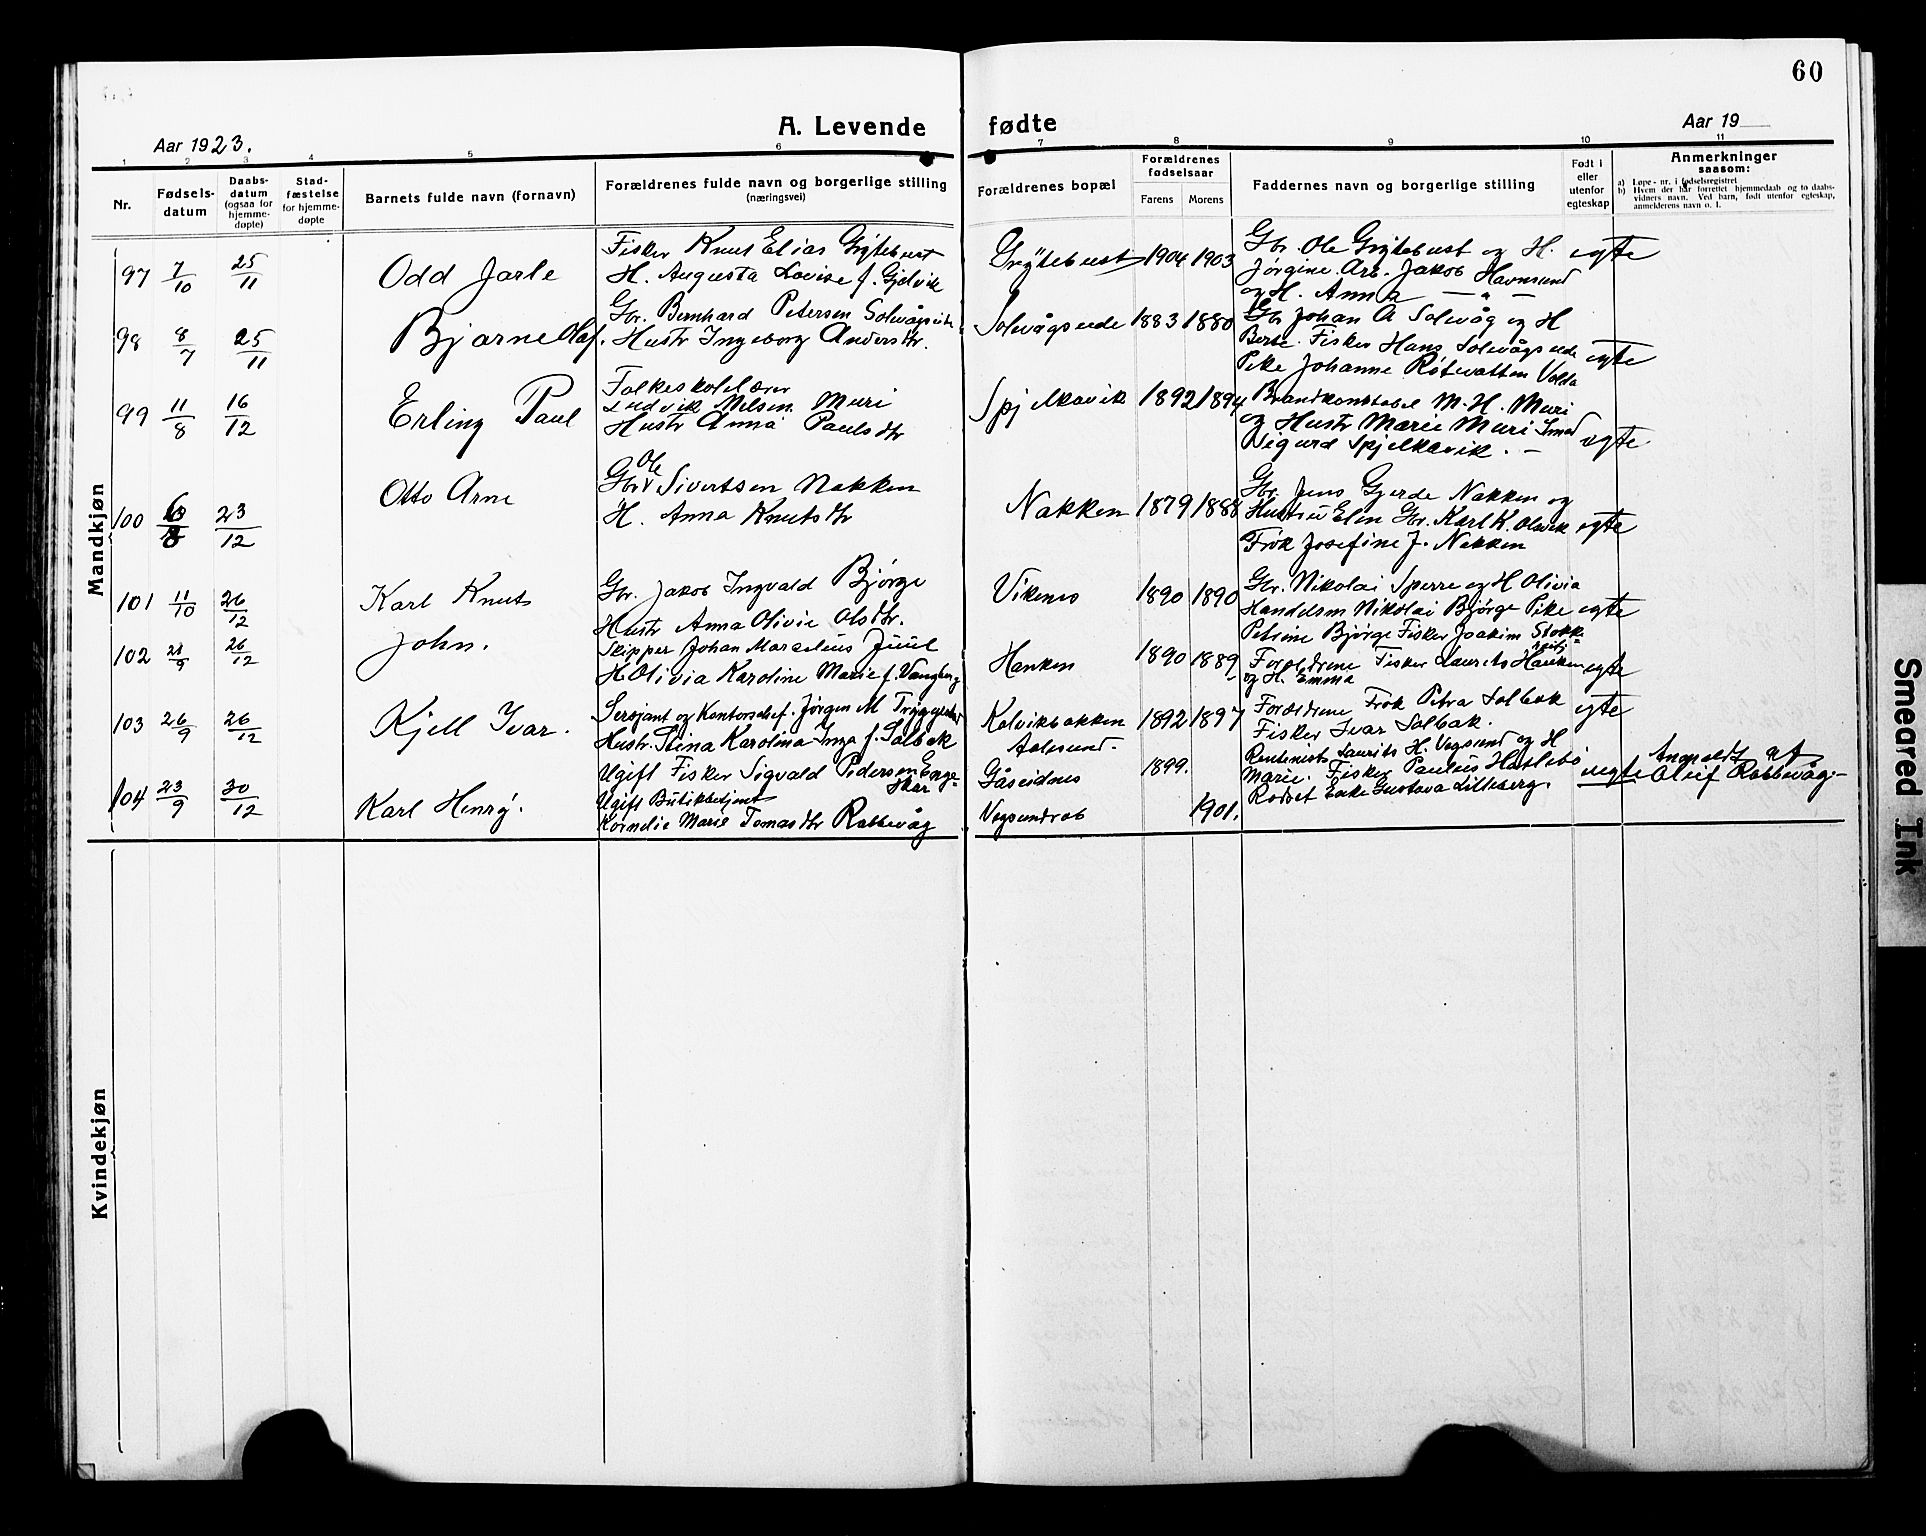 60
A. Levende fødte
Aar 1923.
Aar 19
1 2 3 4 5 6 7 8 9 10 11
Nr.
Fødsels-
datum
Daabs-
datum
(ogsaa for
hjemme-
døpte)
Stad-
fæstelse
for hjemme-
døpte
Barnets fulde navn (fornavn)
Forældrenes fulde navn og borgerlige stilling
(næringsvei)
Forældrenes bopæl
Forældrenes
fødselsaar
Farens Morens
Faddernes navn og borgerlige stilling
Født i
eller
utenfor
egteskap
Anmerkninger
saasom:
a) Løpe-nr. i fødselsregistret
b) Hvem der har forrettet hjemmedaab og to daabs-
vidners navn. Ved barn, født utenfor egteskap,
anmelderens navn o. l.
Mandkjøn
97 7/10 25/11 Odd Jarle
Fisker Knut Elias Grytebust
H. Augusta Lovise f. Gjelvik
Grytebust 1904 1903
Gbr. Ole Grytebust og H.
Jørgine. Arb. Jakob Havnsund
og H. Anna — " —
egte
98 8/7 25/11 Bjarne Olaf.
Gbr. Bernhard Petersen Solevågseide
Hustr Ingeborg Andersdtr.
Solevågseide 1883 1880
Gbr Johan A Solevåg og H
Berte. Fisker Hans Solevågseide
Pike Johanne Røtevatten Volda
egte
99 11/8 16/12 Erling Paul
Folkeskolelærer
Ludvik Nilsen Muri
Hustr Anna Paulsdtr
Spjelkavik 1892 1894
Brandkonstabel M. H. Muri
og Hustr Marie Muri Smed
Sigurd Spjelkavik. —
egte
100 6/8 23/12 Otto Arne
Gbr Ole Sivertsen Nakken
H. Anna Knutsdtr
Nakken 1879 1888
Gbr. Jens Gjerde Nakken og
Hustru Elen Gbr. Karl K. Olsvik
Frøk Josefine J. Nakken
egte
101 11/10 26/12 Karl Knut
Gbr. Jakob Ingvald Bjørge
Hustr Anna Olivie Olsdtr.
Vikenes 1890 1890
Gbr. Nikolai Sperre og H Olivia
Handelsm Nikolai Bjørge Pike
Petrine Bjørge Fisker Joakim Stokk-
egte
102 21/9 26/12 John.
Skipper Johan Marselius Juul
H Olivia Karoline Marie f. Vangberg
Hanken 1890 1889
Forældrene Fisker Laurits Hanken
og H. Emma
egte
103 26/9 26/12 Kjell Ivar.
Sersjant og Kontorchef. Jørgen M Tryggestad
Hustr. Stina Karolina Inga f. Solbak
Kolvikbakken
Aalesund.
1892 1897
Forældrene Frøk Petra Solbak
Fisker Ivar Solbak.
egte
104 23/9 30/12 Karl Henry.
Ugift Fisker Sigvald Pedersen Enge-
skar
Ugift Butikbetjent
Kornelie Marie Tomasdtr Rabbevåg
Gåseidnes 1899.
Vegsundrab 1901.
Rentenist Laurits H. Vegsund og H
Marie. Fisker Paulus Hatlebø
Rødset Enke Gustava Lilleberg.
uegte
Anmeldt af
Oluf Rabbevåg.
Kvindekjøn
Smeared Ink